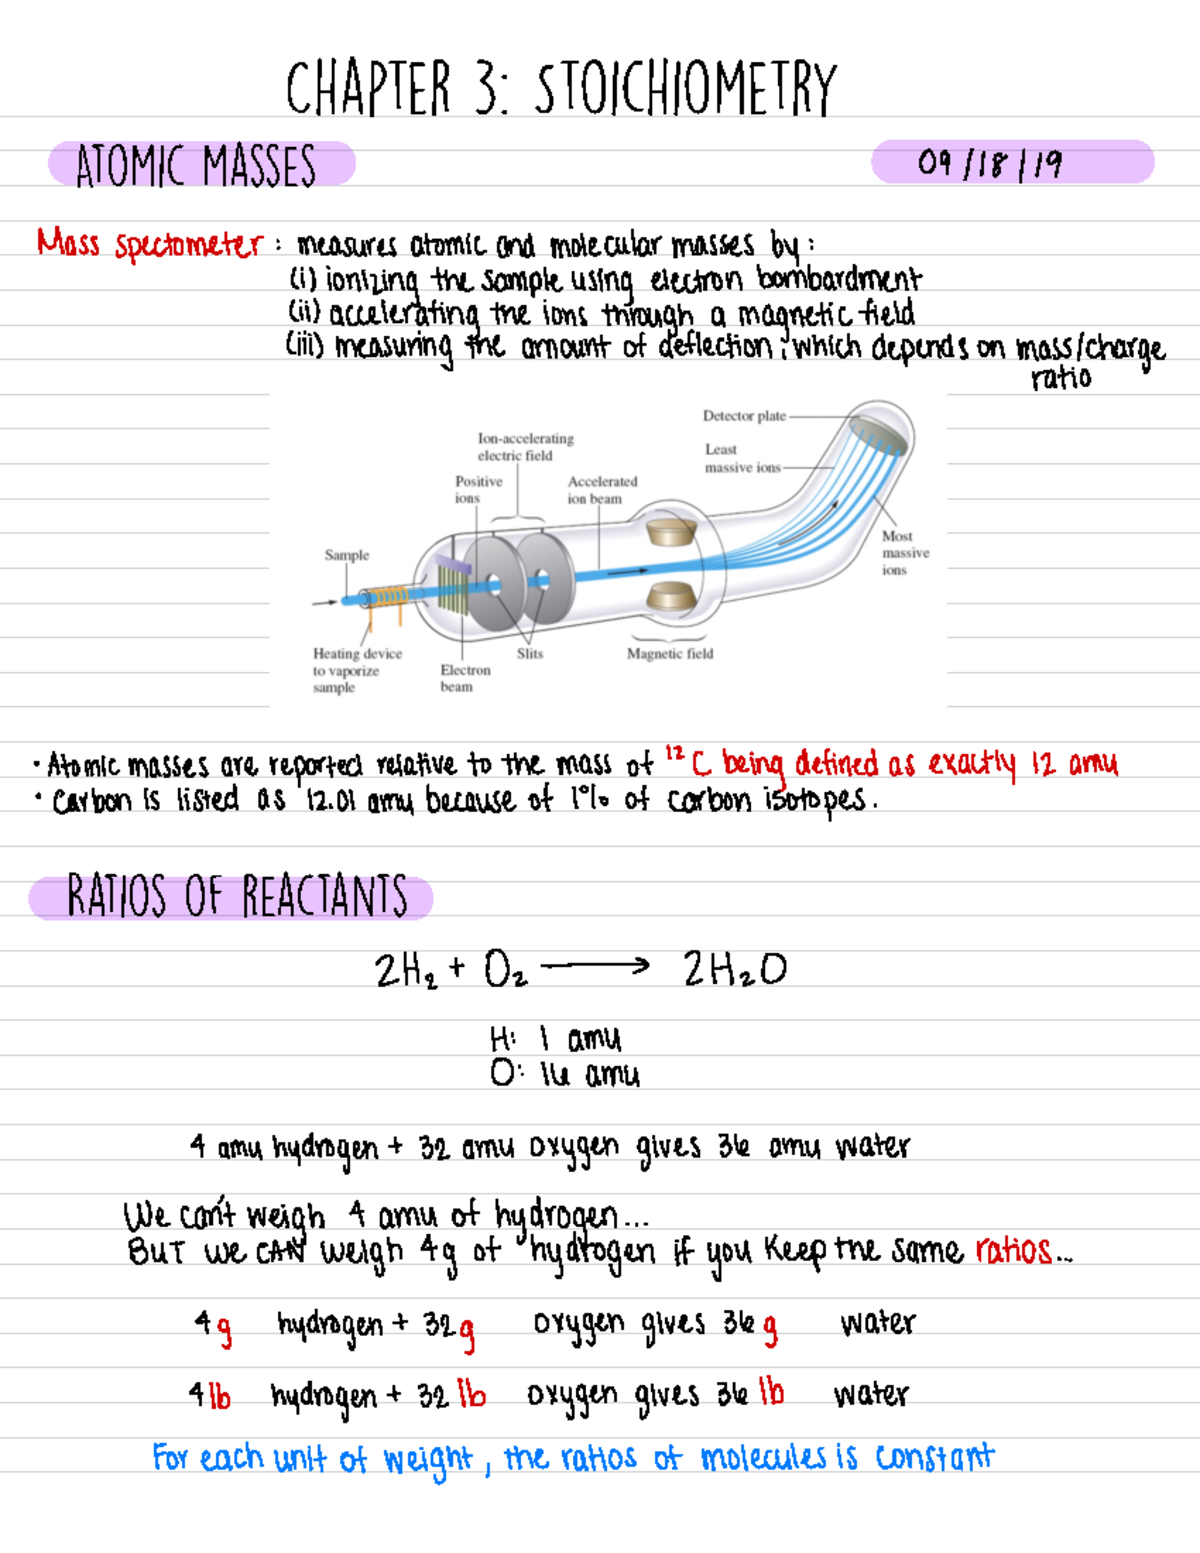 CHAPTER 3: STOICHIOMETRY
ATOMIC MASSES
09/18/19
Mass spectometer: measures atomic and molecular masses by:
(i) ionizing the sample using electron bombardment
(ii) accelerating the ions through a magnetic field
(iii) measuring the amount of deflection; which depends on mass/charge
ratio
Detector plate
Ion-accelerating
electric field
Least
massive ions
Positive
ions
Accelerated
ion beam
Most
massive
ions
Sample
Heating device
to vaporize
sample
Electron
beam
Slits
Magnetic field
· Atomic masses are reported relative to the mass of ¹²C being defined as exactly 12 amu
· Carbon is listed as 12.01 amu because of 1% of carbon isotopes.
RATIOS OF REACTANTS
2H₂ + O₂ ⟶ 2H₂O
H: 1 amu
O: 16 amu
4 amu hydrogen + 32 amu oxygen gives 36 amu water
We can't weigh 4 amu of hydrogen...
BUT we CAN weigh 4g of hydrogen if you keep the same ratios...
4g hydrogen + 32g oxygen gives 36g water
4lb hydrogen + 32 lb oxygen gives 36 lb water
For each unit of weight, the ratios of molecules is constant